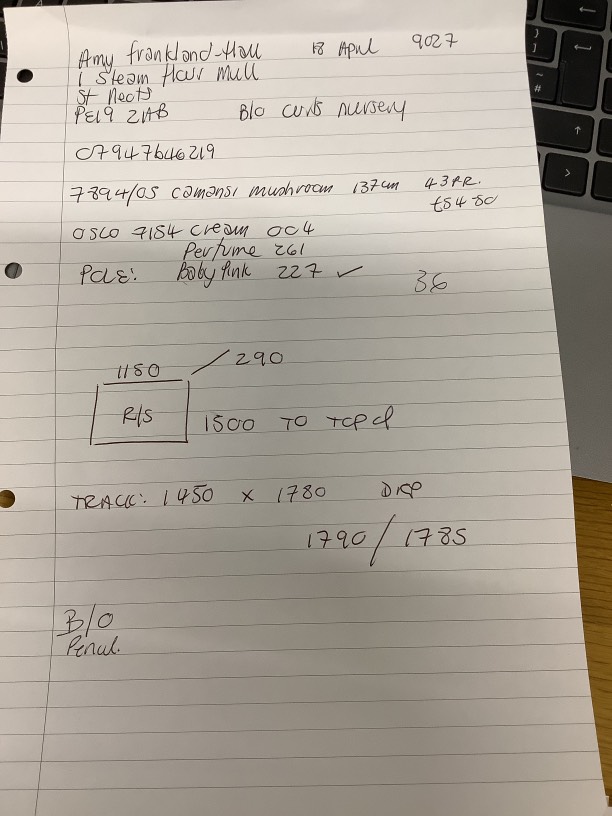 Amy Frankland-Hall 18 April 9027
1 Steam Flour Mill
St Neots
PE19 2AB B/O curts nursery
07947646219
7894/05 comansi mushroom 137cm 43 PR.
£54 50
OSLO 7154 cream 004
Perfume 261
POLE: Baby Pink 227 ✓ 36
1150 / 290
R/S 1500 TO TOP of
TRACK: 1450 x 1780 DROP
1790 / 1785
B/O
Pencil.